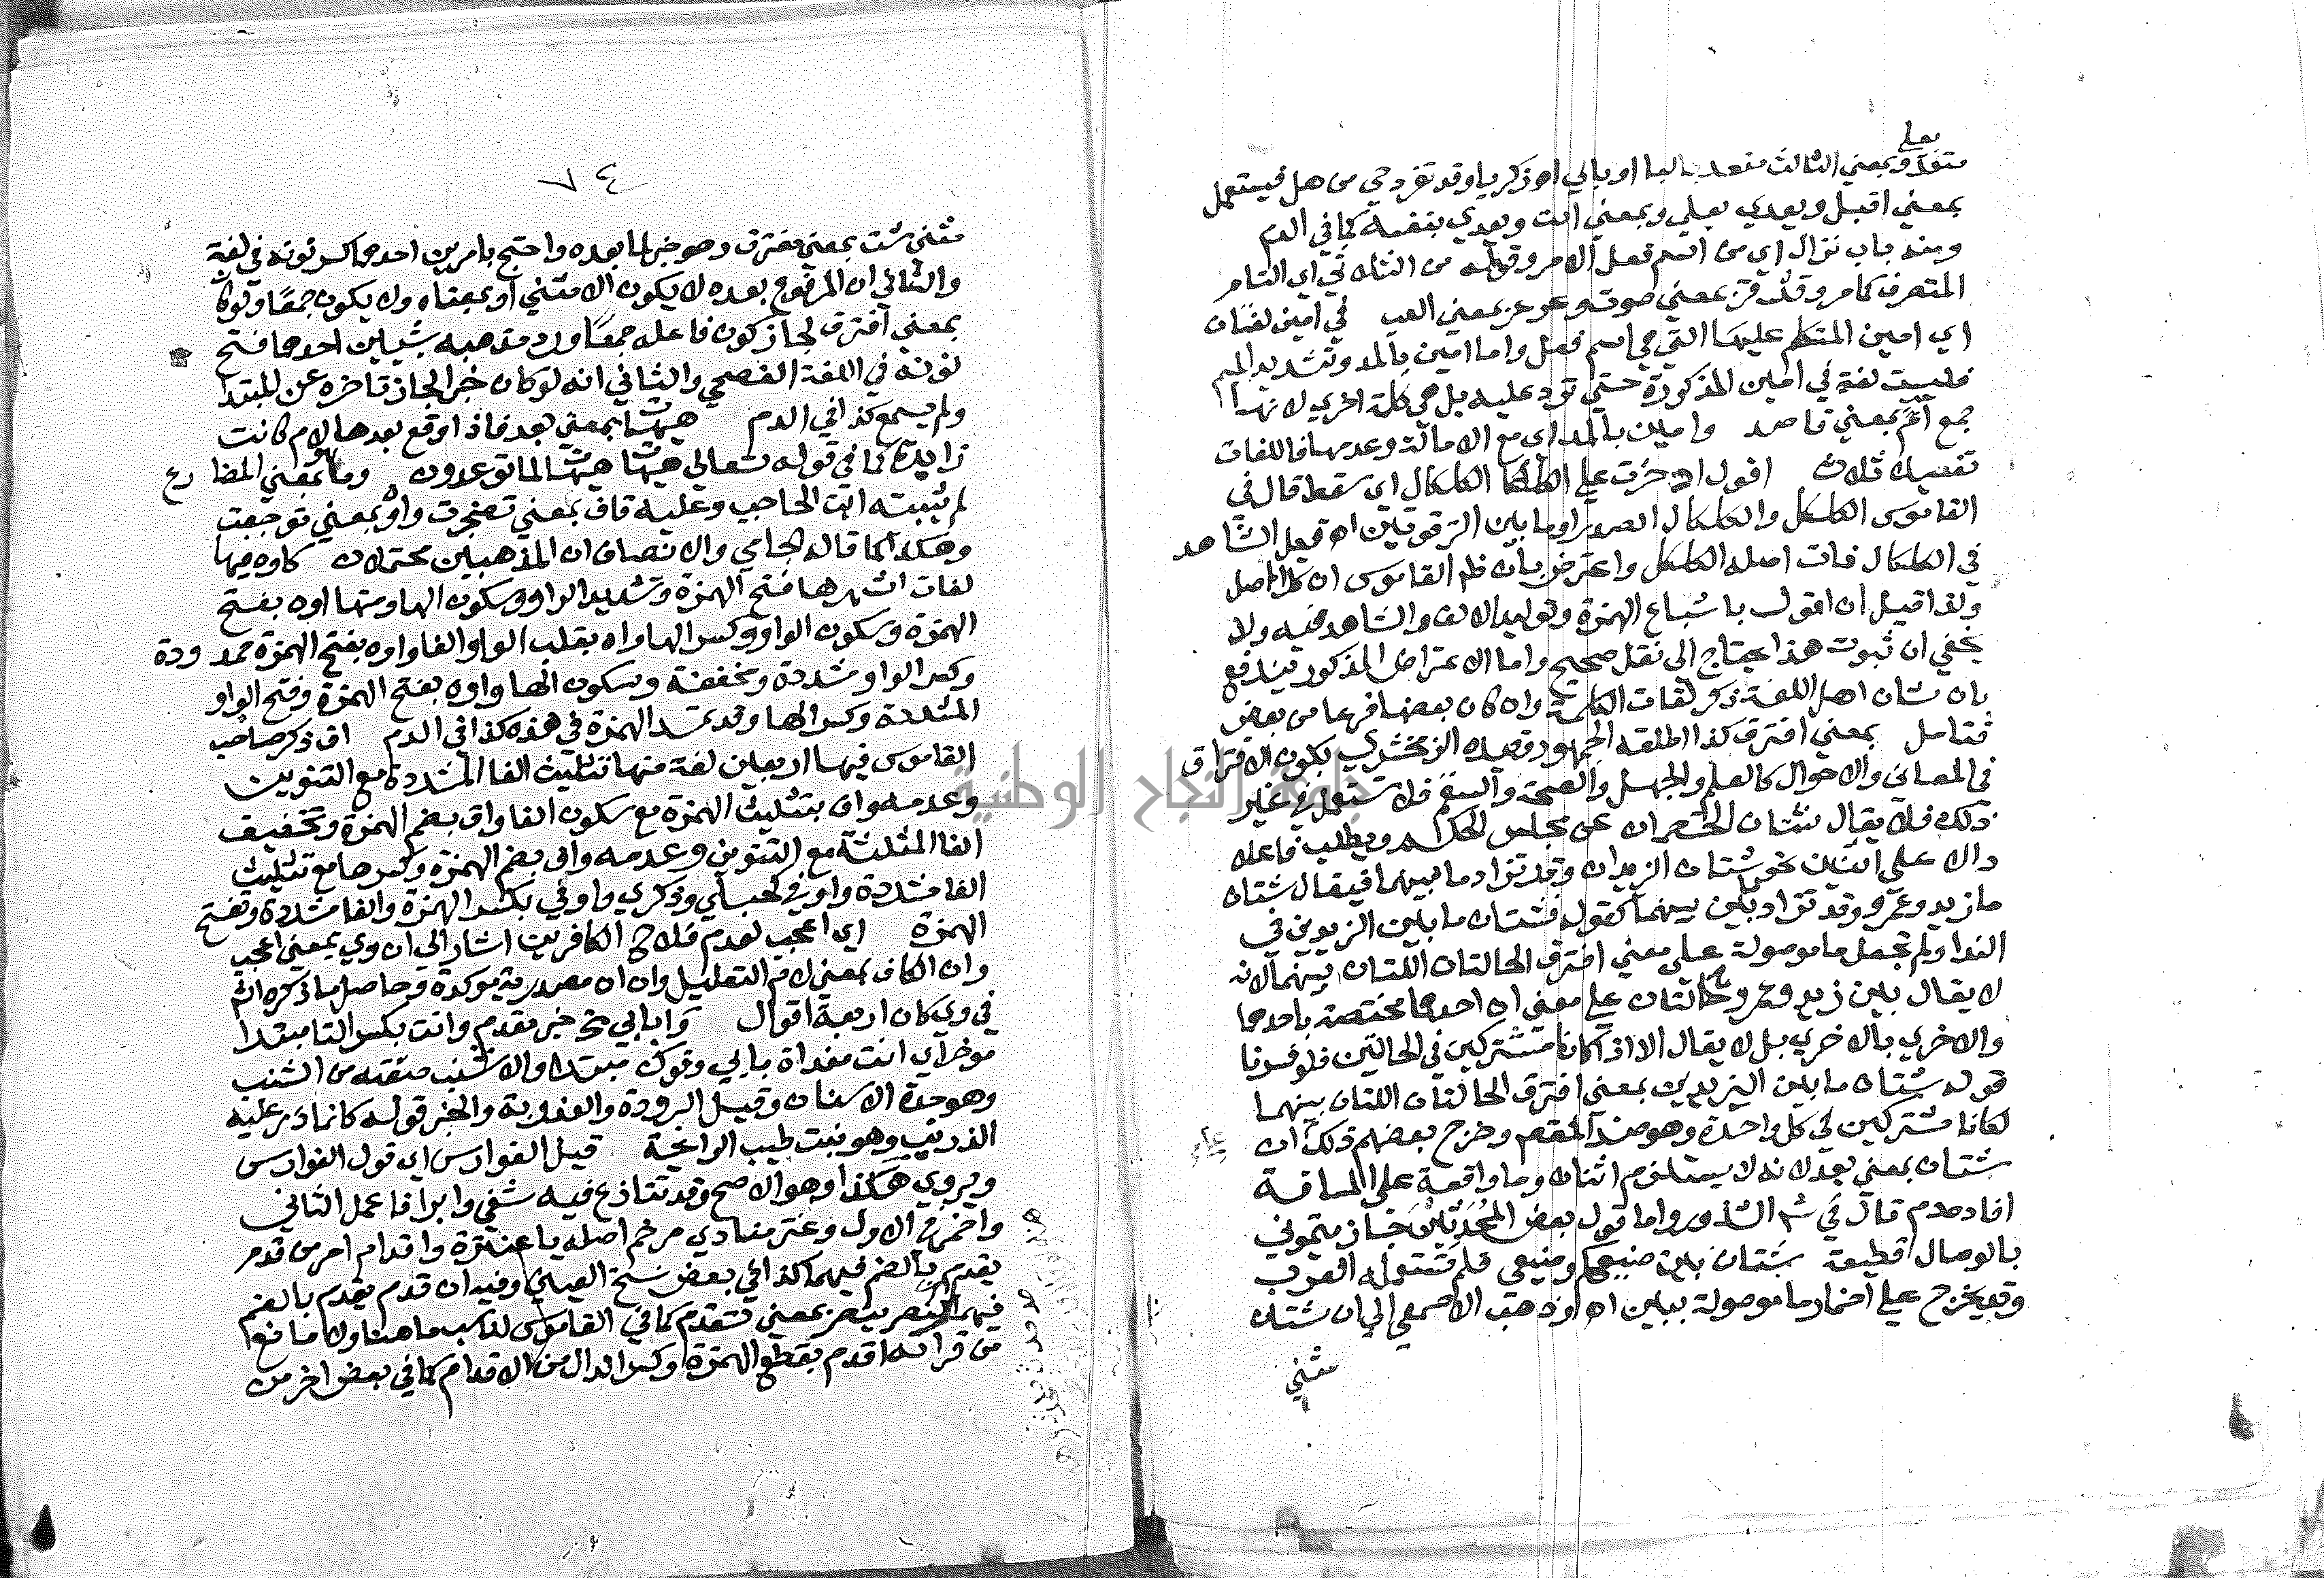 بعلي
متعد وبمعني الثالث متعد بالبا او بالي اه زكريا وقد تفرد حي من هل فيستعمل
بمعني اقبل ويعدي بعلي وبمعني ائت ويعدي بنفسه كما في الدم
ومنه باب نزال اي من اسم فعل الامر وقوله من الثلاثي اي التام
المتصرف كما مر وقوله قر بمعني صوت وعرعر بمعني العب في امين لغتان
اي امين المتكلم عليها التي هي اسم فعل واما امين بالمد وتشديد الميم
فليست لغة في امين المذكورة حتي ترد عليه بل هي كلمة اخري لانها
جمع آمّ بمعني قاصد وامين بالمد اي مع الامالة وعدمها فاللغات
تفصيلا ثلاث اقول اذ خرت علي الكلكال اي سقط قال في
القاموس الكلكل والكلكال الصدر او ما بين الترقوتين اه قيل الشاهد
في الكلكال فان اصله الكلكل واعترض بان ظم القاموس ان كلا اصل
ولذا قيل ان اقول باشباع الهمزة وتوليد الالف والشاهد فيه ولا
يخفي ان ثبوت هذا يحتاج الي نقل صحيح واما الاعتراض المذكور فيندفع
بان شان اهل اللغة ذكر لغات الكلمة وان كان بعضها فرعا من بعض
فتامل بمعني افترق كذا اطلقه الجمهور وقيده الزمخشري بكون الافتراق
في المعاني والاحوال كالعلم والجهل والصحة والسقم فلا تستعمل في غير
ذلك فلا يقال شتان الخصمان عن مجلس الحكم ويطلب فاعلا
دالا علي اثنين نحو شتان الزيدان وقد تزاد ما بينهما فيقال شتان
ما زيد وعمرو وقد تزاد ما بين بينهما كقوله فشتان ما بين اليزيدين في
الندا ولم تجعل ما موصولة علي معني افترق الحالتان اللتان بينهما لانه
لا يقال بين زيد وعمرو حالتان علي معني ان احدهما مختصة باحدهما
والاخري بالاخري بل لا يقال الا اذا كانا مشتركين في الحالتين فلو فسرنا
قوله شتان ما بين اليزيدين بمعني افترق الحالتان اللتان بينهما
لكانا مشتركين في كل واحدة وهو ضد المقصم وخرج بعضهم ذلك ان
شتان بمعني بعد لانه لا يستلزم اثنان وما واقعة علي المسافة
افاده دم قال في ش الشذور واما قول بعض المُحْدَثِيْنَ جازيتموني
بالوصال قطيعة شتان بين صنيعكم وصنيعي فلم تستعمله العرب
وقد يخرج علي اضمار ما موصولة ببين اه وذهب الاصمعي الي ان شتان
مثني
٧٤
مثني شت بمعني مفترق وهو خبر لما بعده واحتج بامرين احدهما كسر نونه في لغة
والثاني ان المرفوع بعده لا يكون الا مثني او بمعناه ولا يكون جمعا ولو كان
بمعني افترق لجاز كون فاعله جمعا ورد مذهبه بشيئين احدهما فتح
نونه في اللغة الفصحي والثاني انه لو كان خبرا لجاز تاخره عن المبتدا
ولم يسمع كذا في الدم هيهات بمعني بعد فاذا وقع بعدها لام كانت
زايدة كما في قوله تعالي هيهات هيهات لما توعدون وما بمعني المضارع
لم يثبته ابن الحاجب وعليه فاف بمعني تضجرت واوه بمعني توجعت
وهكذا كما قاله الجامي والانصاف ان المذهبين محتملان كاوه فيها
لغات اشهرها فتح الهمزة وتشديد الواو وسكون الها ومنها اوه بفتح
الهمزة وسكون الواو وكسر الها واه بقلب الواو الفا واوه بفتح الهمزة ممدودة
وكسر الواو مشددة ومخففة وسكون الها واوه بفتح الهمزة وفتح الواو
المشددة وكسر الها وقد تمد الهمزة في هذه كذا في الدم اف ذكر صاحب
القاموس فيها اربعين لغة منها تثليث الفا المشددة مع التنوين
وعدمه واف بتثليث الهمزة مع سكون الفا واف بضم الهمزة وتخفيف
الفا المثلثة مع التنوين وعدمه وافي بضم الهمزة وكسرها مع تثليث
الفا مشددة وافي كحبلي وذكري وافي بكسر الهمزة والفا مشددة وتفتح
الهمزة اي اعجب لعدم فلاح الكافرين اشار الي ان وي بمعني اعجب
وان الكاف بمعني لام التعليل وان ان مصدرية موكدة وحاصل ما ذكره الش
في وي كان اربعة اقوال وا بابي خ خبر مقدم وانت بكسر التا مبتدا
موخر اي انت مفداة بابي وفوك مبتدا والاشنب صفته من الشنب
وهو حدة الاسنان وقيل البرودة والعذوبة والخبر قوله كانما ذر عليه
الذرنب وهو نبت طيب الرائحة قيل الفوارس اي قول الفوارس
ويروي هكذا وهو الاصح وقد تنازع فيه شفي وابرا فاعمل الثاني
واضمر في الاول وعنتر منادي مرخم اصله يا عنترة واقدام امر من قدم
يقدم بالضم فيهما كذا في بعض نسخ العيني وفيه ان قدم يقدم بالضم
فيهما كنصر ينصر بمعني تقدم كما في القاموس لناسب ما هنا ولا مانع
من قراته اقدم بقطع الهمزة وكسر الدال من الاقدام كما في بعض اخر من
جامعة النجاح الوطنية